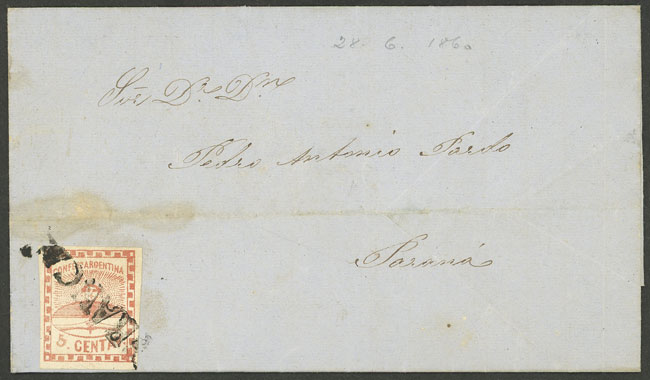 28. 6. 1860
Sor. Dr. Dn.
Pedro Antonio Pardo
Paraná
CONFON ARGENTINA
5. CENTAV